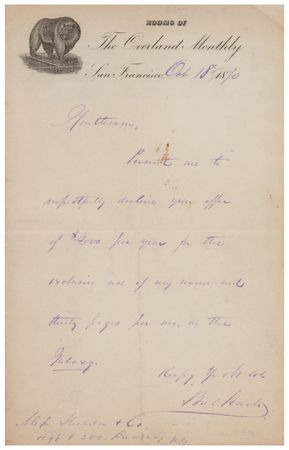 ROOMS OF
The Overland Monthly
San Francisco, Oct 18th 1870
Gentlemen,
Permit me to
respectfully decline your offer
of $4000 per year for the
exclusive use of my name and
thirty pages per mo. in the
Galaxy.
Respy Yr Ob Sdt
Bret Harte
Mess Sheldon & Co
498 & 500 Broadway N.Y.